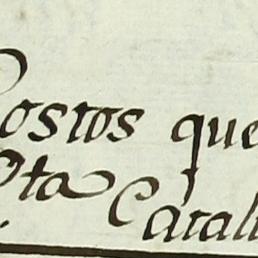 ostos que
ota Catal